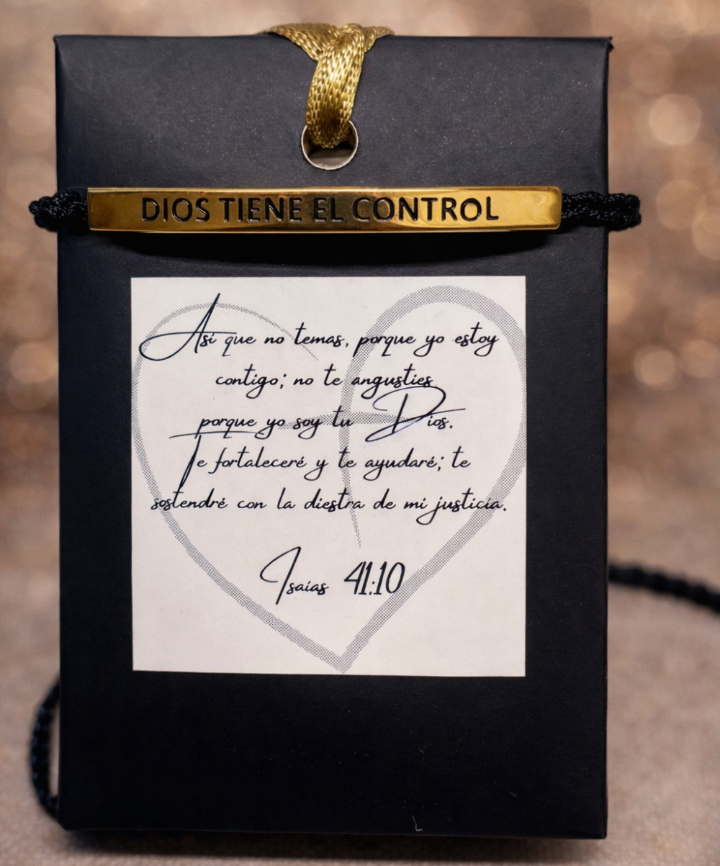 DIOS TIENE EL CONTROL
Así que no temas, porque yo estoy
contigo; no te angusties
porque yo soy tu Dios.
Te fortaleceré y te ayudaré; te
sostendré con la diestra de mi justicia.
Isaías 41:10